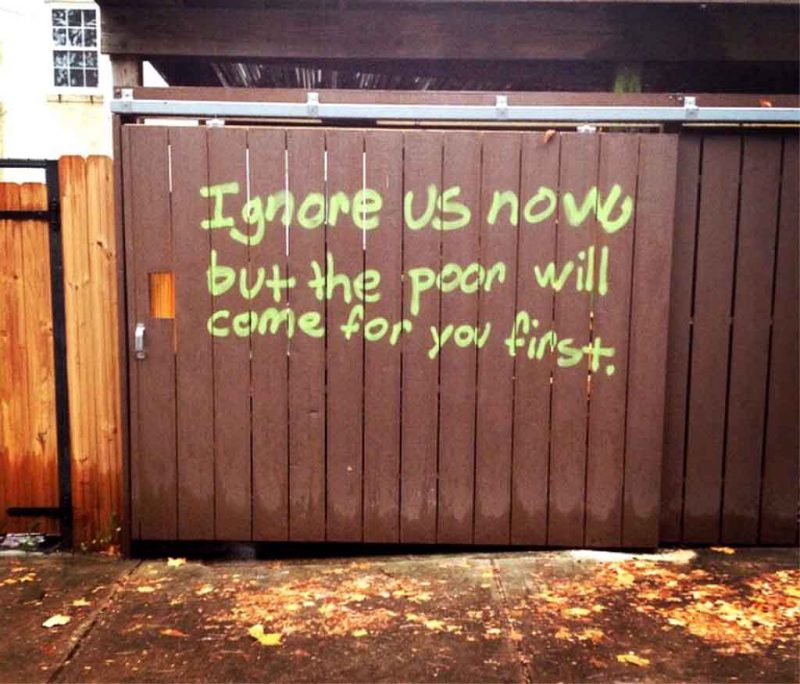 Ignore us now
but the poor will
come for you first.